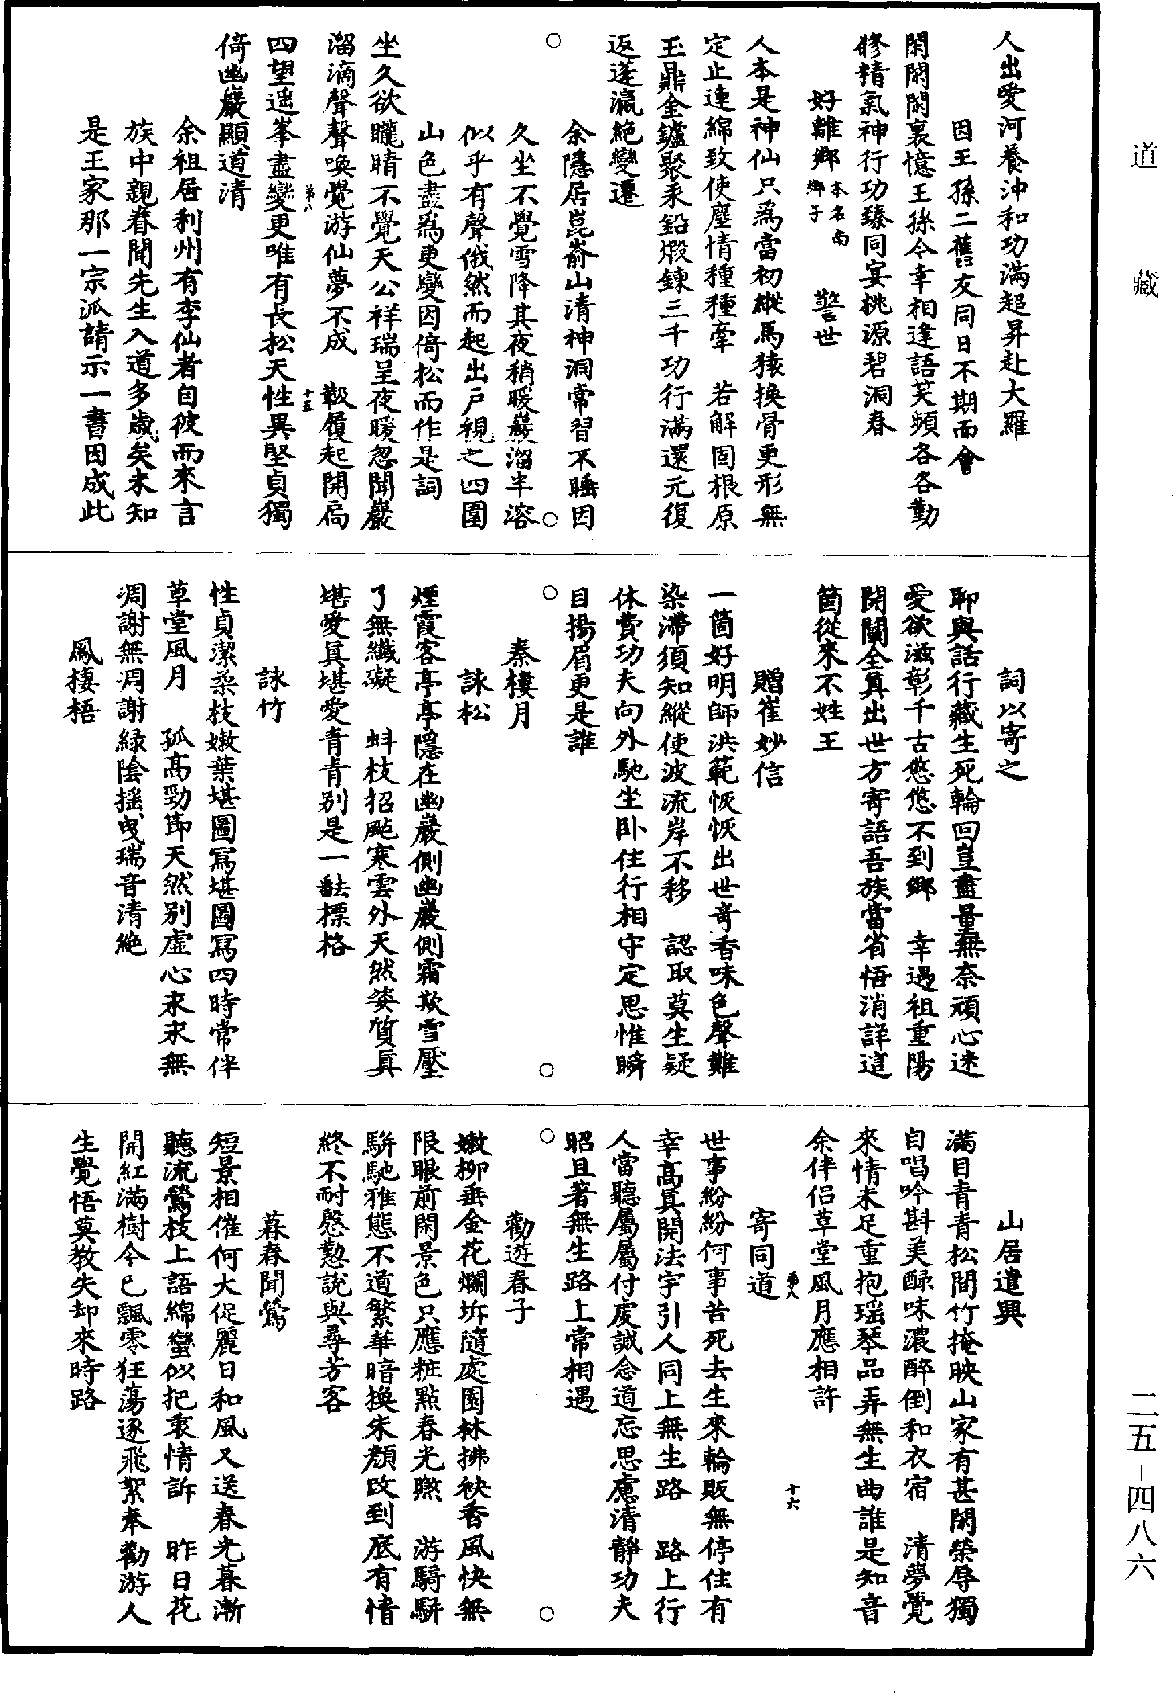 道藏
二五－四八六
人出愛河養沖和功滿超昇赴大羅
因王孫二舊友同日不期而會
閑閑閑裏憶王孫今幸相逢語笑頻各各勤
修精氣神行功臻同宴桃源碧洞春
好離鄉本名南鄉子　警世
人本是神仙只為當初縱馬猿換骨更形無
定止連綿致使塵情種種牽　若解固根原
玉鼎金鑪聚汞鉛煅鍊三千功行滿還元復
返蓬瀛絕變遷
余隱居崑嵛山清神洞常習不睡因
久坐不覺雪降其夜稍暖巖溜半溶
似乎有聲俄然而起出戶視之四圍
山色盡為更變因倚松而作是詞
坐久欲朧睛不覺天公祥瑞呈夜暖忽聞巖
溜滴聲聲喚覺游仙夢不成　靸履起開扃
四望遥峯盡變更唯有長松天性異堅貞獨
倚幽巖顯道清
第八
十五
余祖居利州有李仙者自彼而來言
族中親眷聞先生入道多歲矣未知
是王家那一宗派請示一書因成此
詞以寄之
聊與話行藏生死輪回豈盡量無奈頑心迷
愛欲滋彰千古悠悠不到鄉　幸遇祖重陽
開闡全真出世方寄語吾族當省悟消詳這
箇從來不姓王
贈崔妙信
一箇好明師洪範恢恢出世竒香味色聲難
染滯須知縱使波流岸不移　認取莫生疑
休費功夫向外馳坐卧住行相守定思惟瞬
目揚眉更是誰
秦樓月
詠松
煙霞客亭亭隱在幽巖側幽巖側霜欺雪壓
了無纖礙　蚪枝招颭寒雲外天然姿質真
堪愛真堪愛青青别是一般標格
詠竹
性貞潔柔枝嫩葉堪圖寫堪圖寫四時常伴
草堂風月　孤高勁節天然别虚心永永無
凋謝無凋謝緑陰揺曳瑞音清絶
鳳棲梧
山居遣興
滿目青青松間竹掩映山家有甚閑榮辱獨
自唱吟斟美醁味濃醉倒和衣宿　清夢覺
來情未足重抱瑶琴品弄無生曲誰是知音
余伴侣草堂風月應相許
寄同道
第八
十六
世事紛紛何事苦死去生來輪販無停住有
幸高真開法宇引人同上無生路　路上行
人當聽屬屬付虔誠念道忘思慮清静功夫
昭且著無生路上常相遇
勸遊春子
嫩柳垂金花爛坼隨處園林拂袂香風快無
限眼前閑景色只應粧點春光煞　游騎駢
駢馳雅態不道繁華暗換朱顏改到底有情
終不耐慇懃說與尋芳客
暮春聞鶯
短景相催何大促麗日和風又送春光暮漸
聽流鶯枝上語綿蠻似把衷情訴　昨日花
開紅滿樹今已飄零狂蕩逐飛絮奉勸游人
生覺悟莫教失却來時路